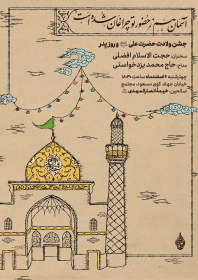 آسمان بزم حضور تو چراغان شده است
جشن ولادت حضرت علی و روز پدر
سخنران: حجت الاسلام افضلی
مداح: حاج محمد یزدخواستی
چهارشنبه ۶ اسفندماه ساعت ۱۸:۳۰
خیابان جهاد، کوی مسعود، مجتمع
صالحین، خیمة انصارالمهدی